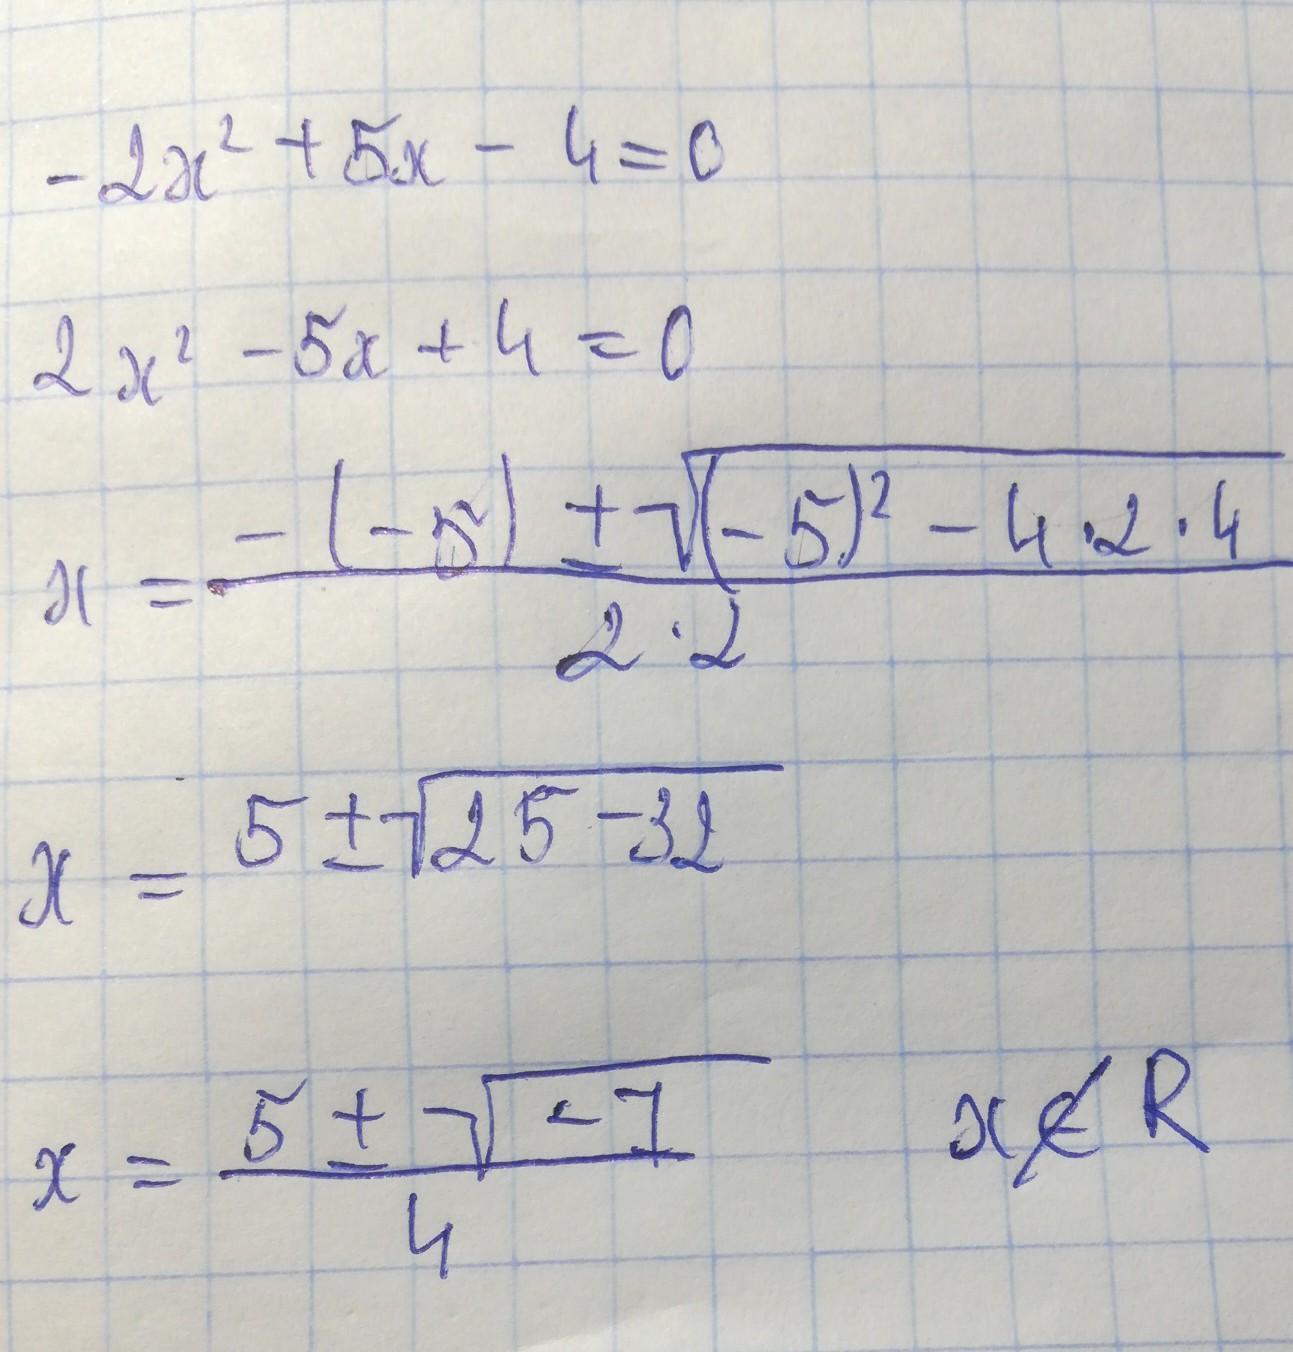 -2x² + 5x - 4 = 0
2x² - 5x + 4 = 0
x = (-(-5) ± √((-5)² - 4·2·4))/(2·2)
x = 5 ± √(25 - 32)
x = (5 ± √(-7))/4    x ∉ R